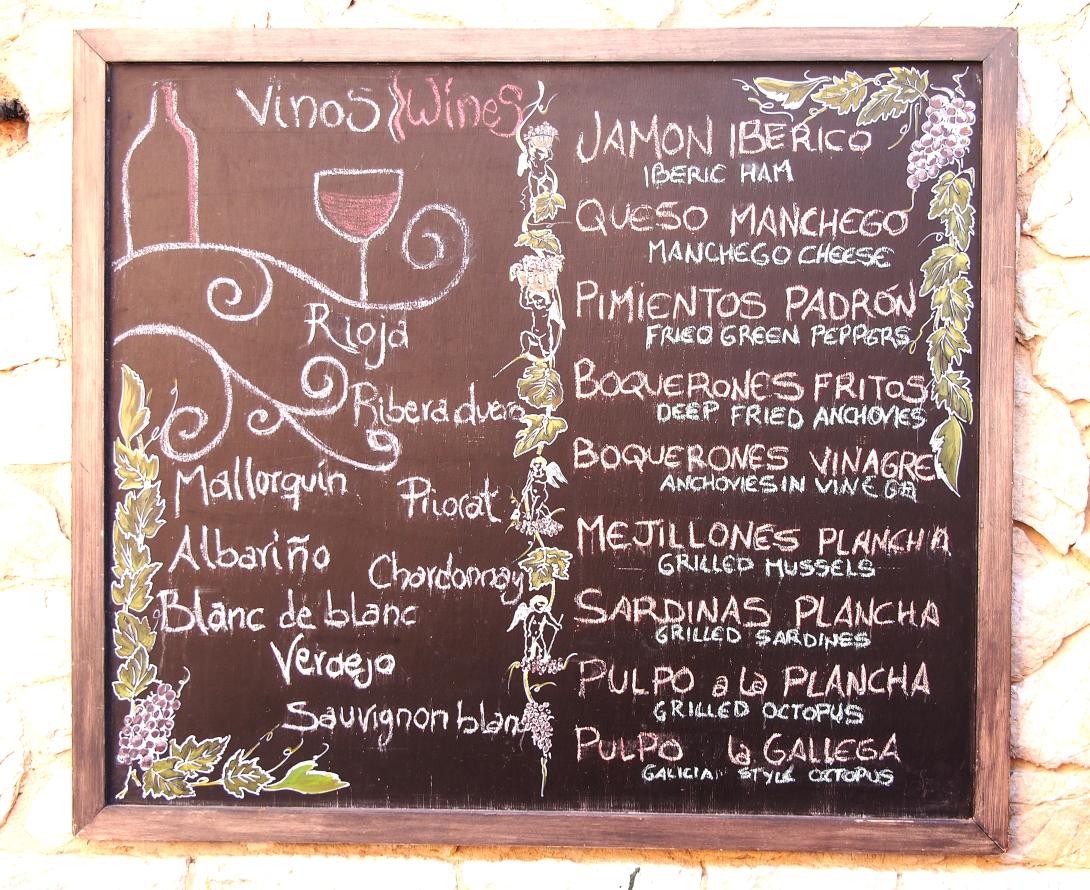 Vinos Wines
Rioja
Ribera duero
Mallorquín
Priorat
Albariño
Chardonnay
Blanc de blanc
Verdejo
Sauvignon blanc
JAMON IBERICO
IBERIC HAM
QUESO MANCHEGO
MANCHEGO CHEESE
PIMIENTOS PADRÓN
FRIED GREEN PEPPERS
BOQUERONES FRITOS
DEEP FRIED ANCHOVIES
BOQUERONES VINAGRE
ANCHOVIES IN VINEGA
MEJILLONES PLANCHA
GRILLED MUSSELS
SARDINAS PLANCHA
GRILLED SARDINES
PULPO a la PLANCHA
GRILLED OCTOPUS
PULPO la GALLEGA
GALICIA STYLE OCTOPUS